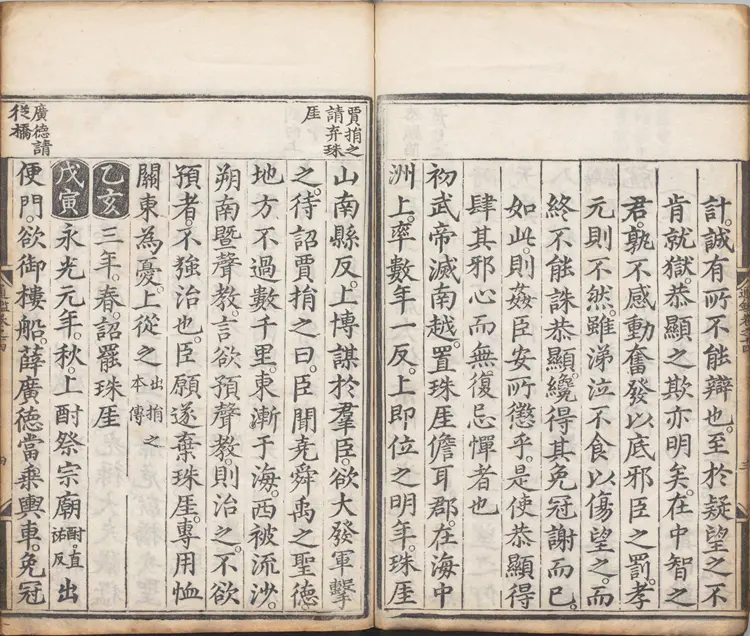 計。誠有所不能辯也。至於疑望之不
肯就獄。恭顯之欺亦明矣。在中智之
君。孰不感動奮發以底邪臣之罰。孝
元則不然。雖涕泣不食以傷望之。而
終不能誅恭顯。纔得其免冠謝而已。
如此。則姦臣安所懲乎。是使恭顯得
肆其邪心而無復忌憚者也
初武帝滅南越。置珠厓儋耳郡。在海中
洲上。率數年一反。上即位之明年。珠厓
賈捐之
請弃珠
厓
山南縣反。上博謀於羣臣。欲大發軍擊
之。待詔賈捐之曰。臣聞堯舜禹之聖德。
地方不過數千里。東漸于海。西被流沙。
朔南暨聲教。言欲預聲教。則治之。不欲
預者。不強治也。臣願遂棄珠厓。專用恤
關東為憂。上從之出捐之本傳
乙亥三年。春。詔罷珠厓
廣德請
從橋
戊寅永光元年。秋。上酎祭宗廟酎。直祐反出
便門。欲御樓船。薛廣德當乘輿車。免冠